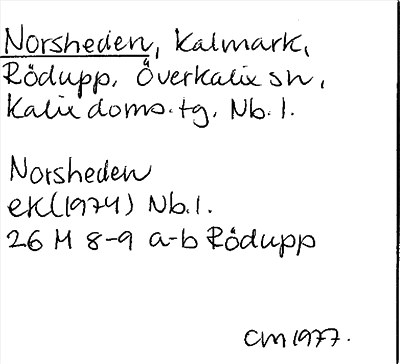 Norsheden, Kalmark,
Rödupp, Överkalix sn,
Kalix doms.tg, Nb.l.
Norsheden
ek(1974) Nb.l.
26 M 8-9 a-b Rödupp
CM 1977.